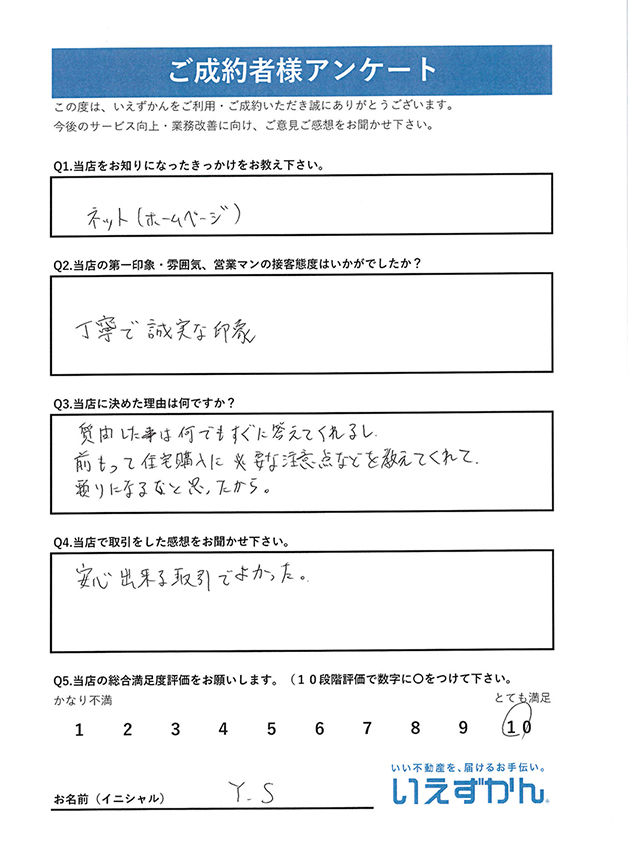 ご成約者様アンケート
この度は、いえずかんをご利用・ご成約いただき誠にありがとうございます。
今後のサービス向上・業務改善に向け、ご意見ご感想をお聞かせ下さい。
Q1.当店をお知りになったきっかけをお教え下さい。
ネット(ホームページ)
Q2.当店の第一印象・雰囲気、営業マンの接客態度はいかがでしたか?
丁寧で誠実な印象
Q3.当店に決めた理由は何ですか?
質問した事は何でもすぐに答えてくれるし、
前もって住宅購入に必要な注意点などを教えてくれて、
頼りになるなと思ったから。
Q4.当店で取引をした感想をお聞かせ下さい。
安心出来る取引でよかった。
Q5.当店の総合満足度評価をお願いします。(10段階評価で数字に〇をつけて下さい。
かなり不満 とても満足
1 2 3 4 5 6 7 8 9 10
いい不動産を、届けるお手伝い。
いえずかん®
お名前(イニシャル) Y.S